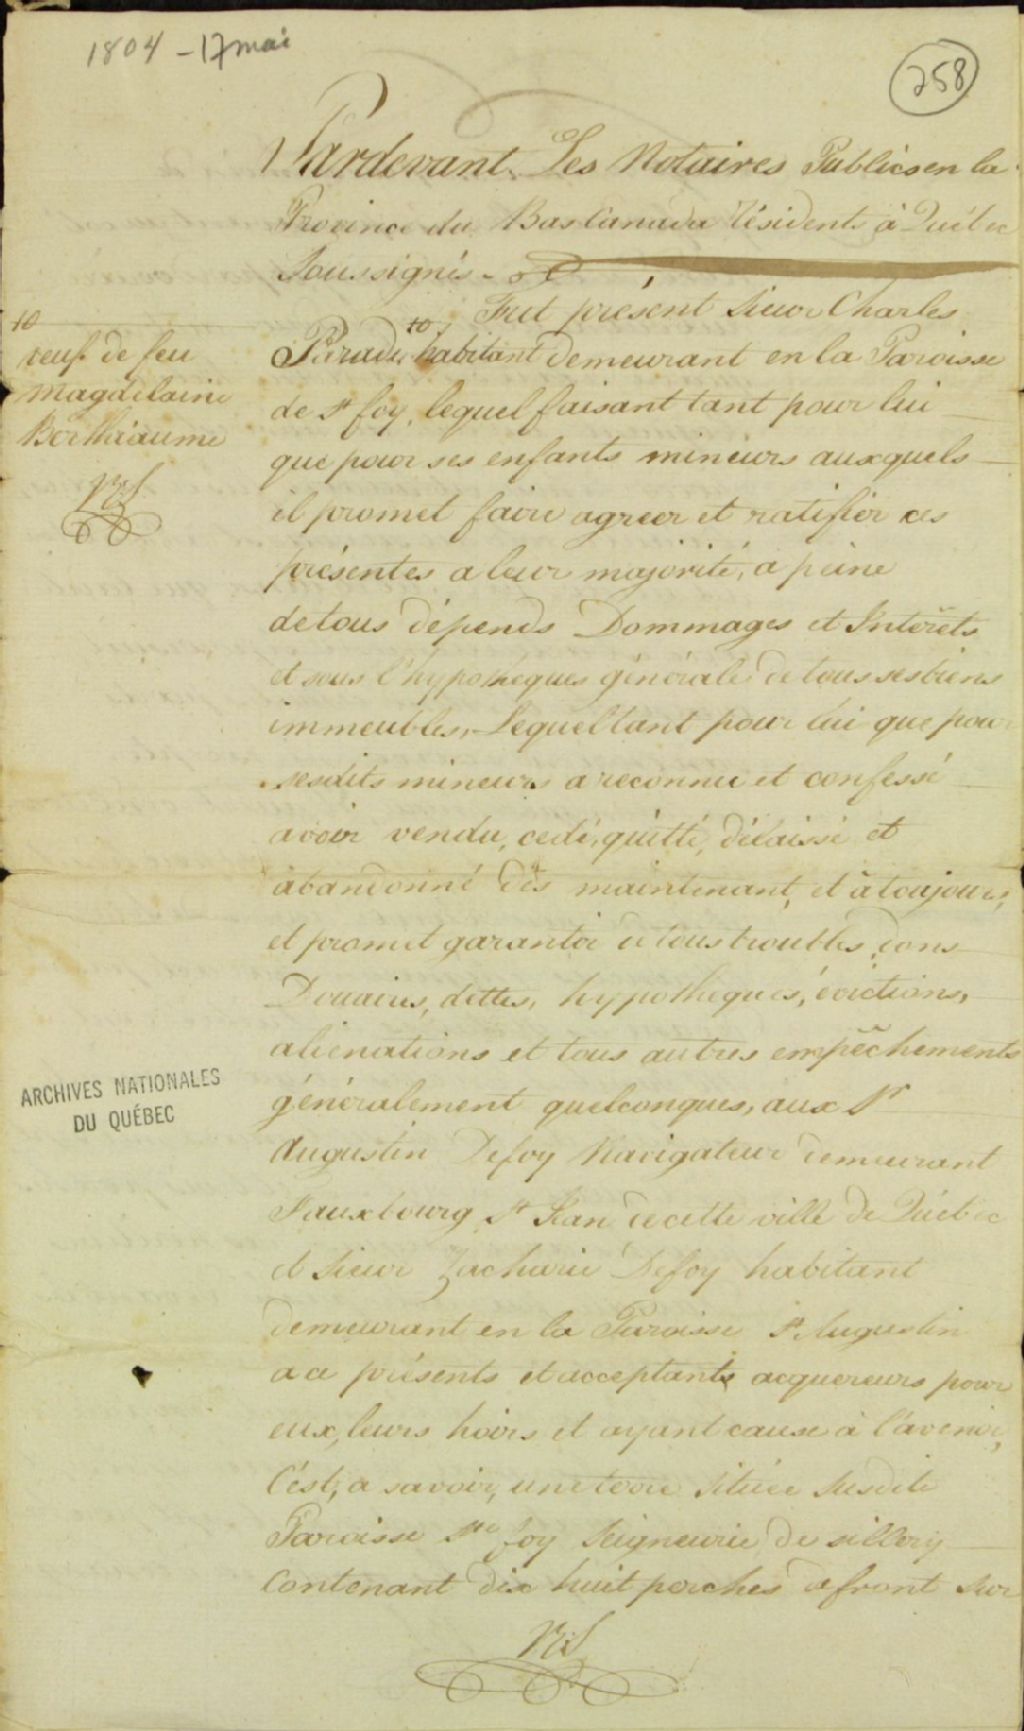 1804 - 17 mai
258
Pardevant Les Notaires Publics en la
Province du Bas Canada Résidents à Québec
Soussignés
Fut présent Sieur Charles
Paradis habitant demeurant en la Paroisse
de St foy, lequel faisant tant pour lui
que pour ses enfants mineurs auxquels
il promet faire agreer et ratifier ces
présentes a leur majorité, a peine
de tous dépends Dommages et Interêts
et sous l'hypotheques générale de tous ses biens
immeubles, Lequel tant pour lui que pour
sesdits mineurs a reconnu et confessé
avoir vendu, cedé, quitté, délaissé et
abandonné dès maintenant, et à toujours,
et promet garantir de tous troubles, dons
Douaires, dettes, hypotheques, évictions,
alienations et tous autres empêchements
généralement quelconques, aux Sr
Augustin Defoy Navigateur demeurant
Fauxbourg St Jean de cette ville de Québec
et Sieur Zacharie Defoy habitant
demeurant en la Paroisse St Augustin
a ce présents et acceptants acquereurs pour
eux, leurs hoirs et ayant cause à l'avenir,
C'est, a savoir, une terre située susdite
Paroisse Ste foy Seigneurie de sillery
Contenant dix huit perches de front sur
veuf de feu
Magdelaine
Berthiaume
ARCHIVES NATIONALES
DU QUÉBEC